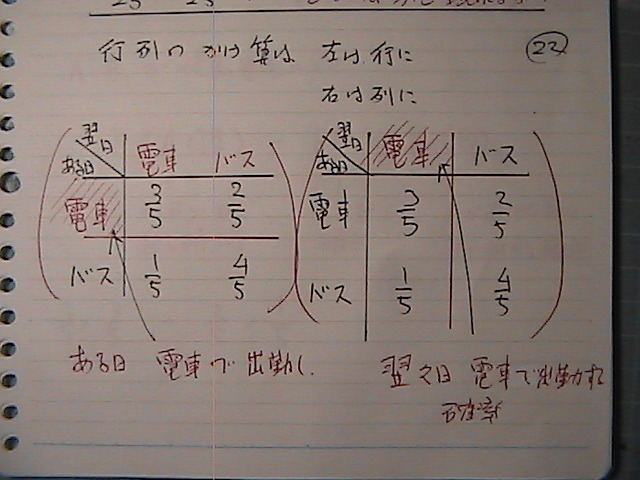 行列のかけ算は 左は行に ㉒
右は列に
翌日 電車 バス 翌日 電車 バス
ある日 ある日
電車 3/5 2/5 電車 3/5 2/5
バス 1/5 4/5 バス 1/5 4/5
ある日 電車で出勤し、 翌々日 電車で出勤する
確率